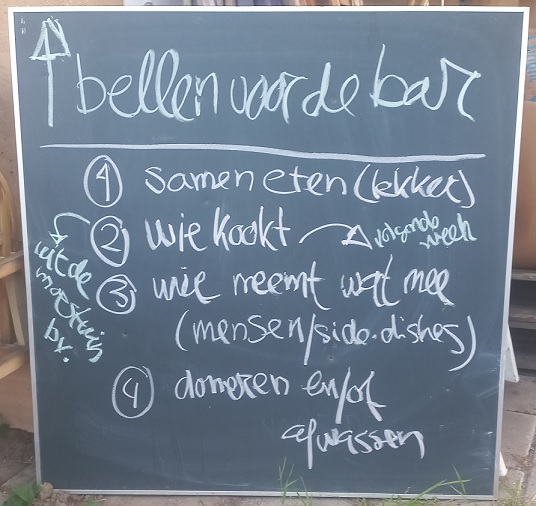 bellen voor de bar
1 samen eten (lekker)
2 wie kookt → volgende week
uit de moestuin bv.
3 wie neemt wat mee
(mensen/side-dishes)
4 doneren en/of
afwassen